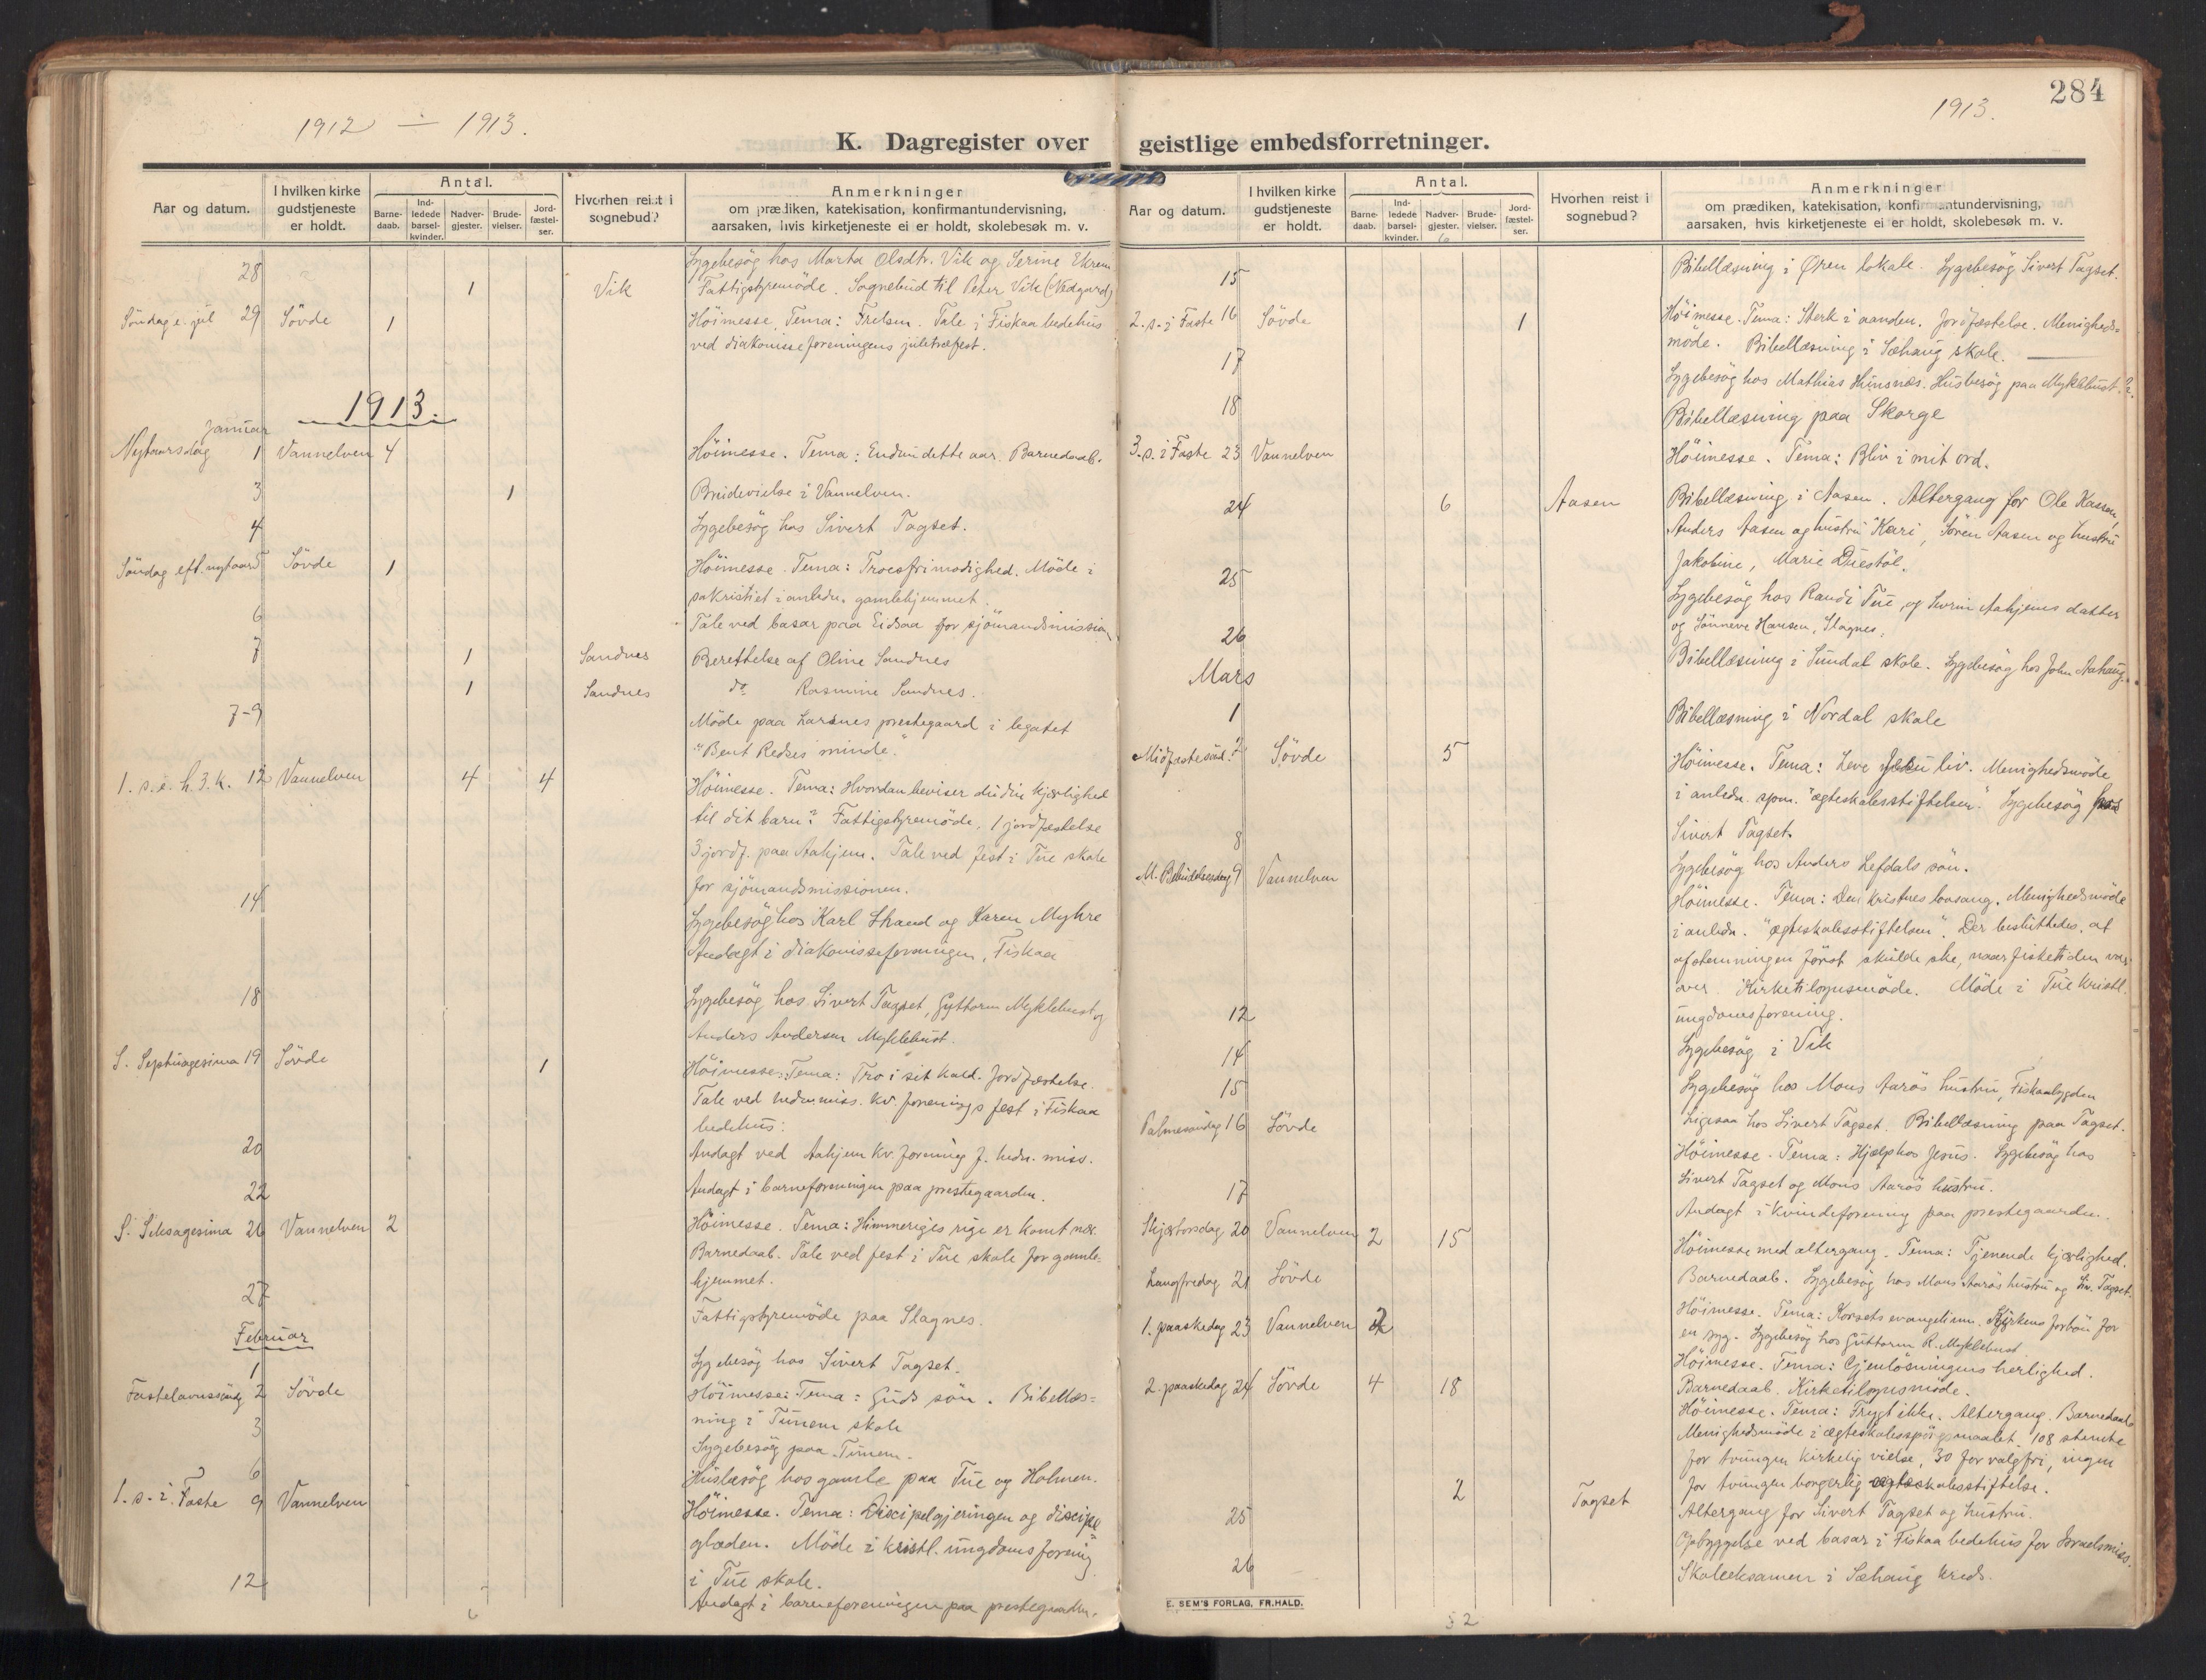 1912 ÷ 1913.
K. Dagregister over
Aar og datum.
I hvilken kirke gudstjeneste er holdt.
Antal.
Barne-daab.
Ind-ledede barsel-kvinder.
Nadver-gjester.
Brude-vielser.
Jord-fæstel-ser.
Hvorhen reist i sognebud?
Anmerkninger
om prædiken, katekisation, konfirmantundervisning,
aarsaken, hvis kirketjeneste ei er holdt, skolebesøk m. v.
28 1 Vik Sygebesøg hos Marta Olsdtr. Vik og Serine Ekrem
Fattigstyremöde. Sognebud til Peter Vik (Nedgard)
Söndag e. jul 29 Sövde 1 Höimesse. Tema: Frelsen. Tale i Fiskaa bedehus
ved diakonisseforeningens juletræfest.
1913.
Januar
Nytaarsdag 1 Vannelven 4 Höimesse. Tema: Endnu dette aar. Barnedaab.
3 1 Brudevielse i Vannelven.
4 Sygebesøg hos Sivert Tagset.
Söndag eft. nytaar 5 Sövde 1 Höimesse. Tema: Troesfrimodighed. Möde i
sakristiet i anledn. gamlehjemmet.
6 Tale ved basar paa Eidsaa for sjömandsmission
7 1 Sandnes Berettelse af Oline Sandnes
1 Sandnes do Rasmine Sandnes.
7-9 Möde paa Larsnes prestegaard i legatet
"Bent Redses minde."
1. s. e. h. 3 k. 12 Vannelven 4 4 Höimesse. Tema: Hvordan beviser du din kjærlighed
til dit barn? Fattigstyremöde, 1 jordfæstelse
3 jordf. paa Aahjem. Tale ved fest i Tue skole
for sjömandsmissionen.
14 Sygebesøg hos Karl Strand og Karen Myhre
Andagt i diakonisseforeningen, Fiskaa
18 Sygebesøg hos Sivert Tagset, Guttorm Myklebust og
Anders Andersen Myklebust.
S. Septuagesima 19 Sövde 1 Höimesse. Tema: Tro i sit kald. Jordfæstelse.
Tale ved hedn. miss. kv. forenings fest i Fiskaa
bedehus.
20 Andagt ved Aahjem kv. forening f. hedn. miss.
22 Andagt i barneforeningen paa prestegaarden.
S. Seksagesima 26 Vannelven 2 Höimesse. Tema: Himmeriges rige er komt nær.
Barnedaab. Tale ved fest i Tue skole for gamle-
hjemmet.
27 Fattigstyremöde paa Slagnes.
Februar
1 Sygebesøg hos Sivert Tagset.
Fastelavnssöndg 2 Sövde Höimesse. Tema: Guds sön. Bibellæs-
ning i Tunem skole
3 Sygebesøg paa Tunem.
6 Husbesøg hos gamle paa Tue og Holmen.
1. s. i Faste 9 Vannelven Höimesse. Tema: Discipelgjerningen og discipel
glæden. Möde i kristl. ungdomsforening
i Tue skole.
12 Andagt i barneforeningen paa prestegaarden.
6
284
1913.
geistlige embedsforretninger.
Aar og datum.
I hvilken kirke gudstjeneste er holdt.
Antal.
Barne-daab.
Ind-ledede barsel-kvinder.
Nadver-gjester.
Brude-vielser.
Jord-fæstel-ser.
Hvorhen reist i sognebud?
Anmerkninger
om prædiken, katekisation, konfi antundervisning,
aarsaken, hvis kirketjeneste ei er holdt, skolebesøk m. v.
6
15 Bibellæsning i Øren lokale. Sygebesøg Sivert Tagset.
2. s. i Faste 16 Sövde 1 Höimesse. Tema: Sterk i aanden. Jordfæstelse. Menigheds-
möde. Bibellæsning i Sæhaug skole.
17 Sygebesøg hos Mathias Hunsnes. Husbesøg paa Myklebust.
18 Bibellæsning paa Skorge
3. s. i Faste 23 Vannelven Höimesse. Tema: Bliv i mit ord.
24 6 Aasen Bibellæsning i Aasen. Altergang for Ole Hansen,
Anders Aasen og hustru Kari, Sören Aasen og hustru
Jakobine, Marie Duestöl.
25 Sygebesøg hos Randi Tue og Severin Aahjems datter
og Sönneve Hansen, Slagnes.
26 Bibellæsning i Sundal skole. Sygebesøg hos John Aahaug.
Mars
1 Bibellæsning i Nordal skole
Midfastesönd. 2 Sövde 5 Höimesse. Tema: Leve Jesu liv. Menighedsmöde
i anledn. spm. "ægteskabsstiftelsen." Sygebesøg hos
Sivert Tagset.
8 Sygebesøg hos Anders Lefdals sön.
M. Bebudelsesdag 9 Vannelven Höimesse. Tema: Den kristnes lovsang. Menighedsmöde
i anledn. "ægteskabsstiftelsen". Der besluttedes, at
afstemningen först skulde ske, naar fisketiden var
over. Kirketilsynsmöde. Möde i Tue kristl.
ungdomsforening.
12 Sygebesøg i Vik
14 Sygebesøg hos Mons Aarös hustru, Fiskaabygden
15 Ligesaa hos Sivert Tagset. Bibellæsning paa Tagset.
Palmesöndag 16 Sövde Höimesse. Tema: Hjælp hos Jesus. Sygebesøg hos
Sivert Tagset og Mons Aarös hustru.
17 Andagt i kvindeforening paa prestegaarden.
Skjærtorsdag 20 Vannelven 2 15 Höimesse med altergang. Tema: Tjenende kjærlighed.
Barnedaab. Sygebesøg hos Mons Aarös hustru og Siv. Tagset.
Langfredag 21 Sövde Höimesse. Tema: Korsets evangelium. Kirkens forbön for
en syg. Sygebesøg hos Guttorm R. Myklebust.
1. paaskedag 23 Vannelven 2 Höimesse. Tema: Gjenlösningens herlighed.
Barnedaab. Kirketilsynsmöde.
2. paaskedag 24 Sövde 4 18 Höimesse. Tema: Frygt ikke. Altergang. Barnedaab
Menighedsmöde i ægteskabsspörgsmaalet. 108 stemte
for tvungen kirkelig vielse, 30 for valgfri, ingen
for tvungen borgerlig ægteskabsstiftelse.
2 Tagset Altergang for Sivert Tagset og hustru.
25 Opbyggelse ved basar i Fiskaa bedehus for Israelsmiss.
26 Skoleeksamen i Sæhaug kreds.
E. SEM'S FORLAG, FR.HALD.
52